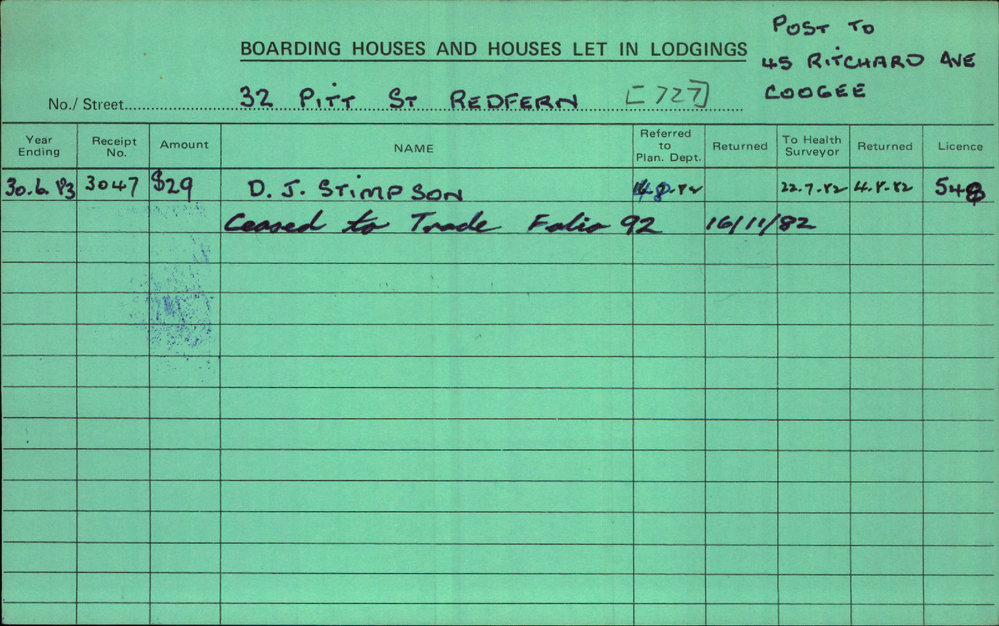 POST TO
BOARDING HOUSES AND HOUSES LET IN LODGINGS
45 RITCHARD AVE
COOGEE
No./Street 32 PITT ST REDFERN [727]
Year Ending Receipt No. Amount NAME Referred to Plan. Dept. Returned To Health Surveyor Returned Licence
30.6.83 3047 $29 D. J. STIMPSON 22.7.82 4.8.82 548
Ceased to Trade Folio 92 16/11/82